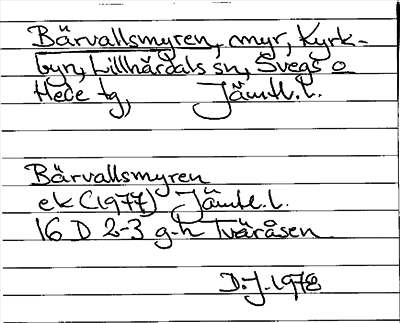 Bärvallsmyren, myr, Kyrk-
byn, Lillhärdals sn, Svegs o
Hede tg, Jämtl.l.
Bärvallsmyren
ek (1977) Jämtl.l.
16 D 2-3 g-h Tväråsen
D.J. 1978